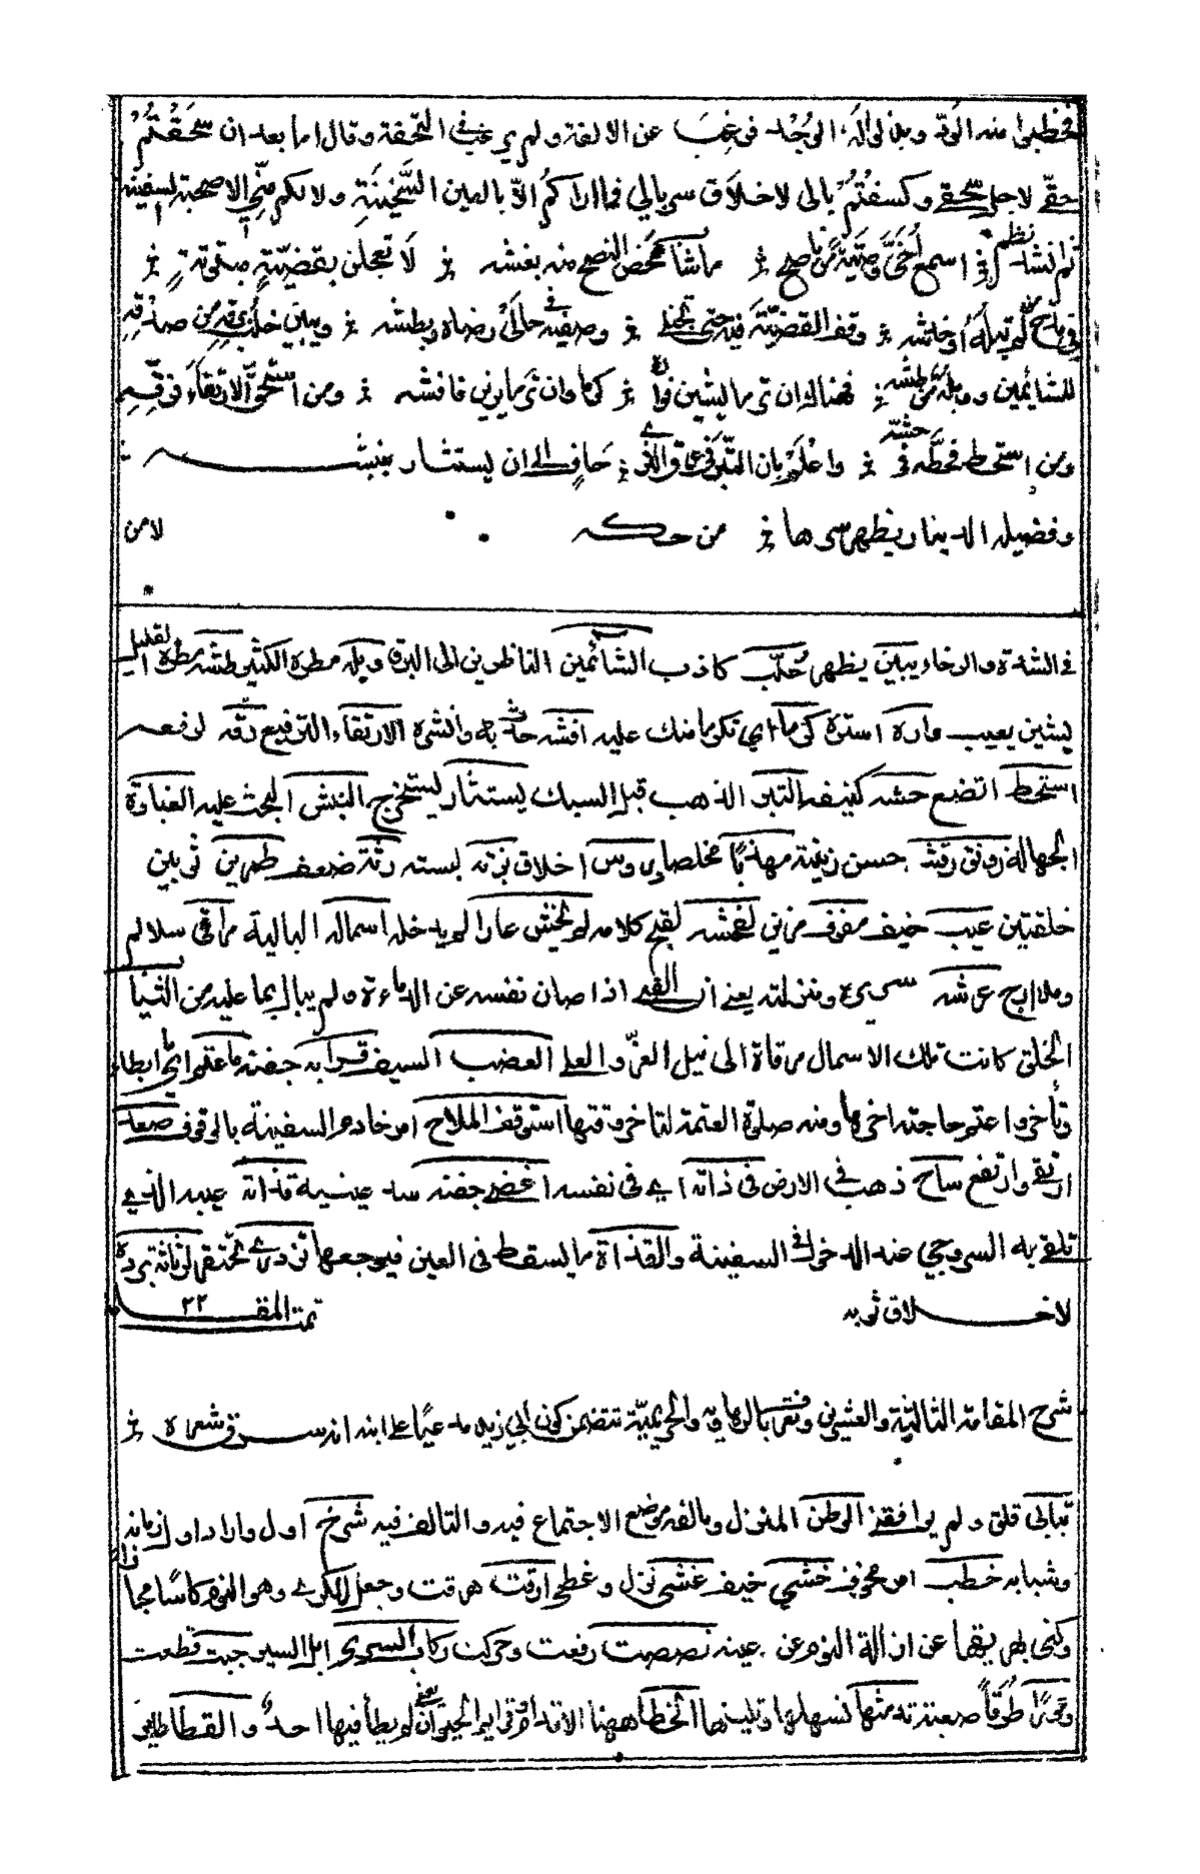 فخطبوا منه الود وبذلوا له الوجد فرغب عن الالفة ولم يرغب في التحفة وقال اما بعد ان سحقتم
حقي لاجل سحقي وكسفتم بالي لاخلاق سربالي فما اراكم الا بالعين السخينة ولا لكم مني الا صحبة السفينة
ثم انشد نظم اسمع اخي وصية من ناصح ما شاب محض النصح منه بغشه لا تعجلن بقضية مبتوتة
في مدح من لم تبله او خدشه وقف القضية فيه حتى تجتلي وصفيه في حالي رضاه وبطشه ويبين خلب برقه من صدقه
للشائمين ووبله من طشه فهناك ان تر ما يشين فواره كرما وان تر ما يزين فافشه ومن استحق الارتقاء فرقه
ومن استحط فحطه في حشه واعلم بان التبر في عرق الثرى خاف الى ان يستثار بنبشه
وفضيلة الدينار يظهر سرها من حكه لا من
في الشدة والرخاء يبين يظهر خلب كاذب الشائمين الناظرين الى البرق وبله مطره الكثير طشه مطره القليل
يشين يعيب واره استره كرما اي تكرما منك عليه افشه حدث به وانشره الارتقاء الترفيع رقه ارفعه
استحط اتضع حشه كنيفه التبر الذهب قبل السبك يستثار يستخرج النبش البحث عليه الغباوة
الجهالة رونق رقشه حسن زينة مهذبا مخلصا دروس اخلاق بزته لبسته رثة ضعف طمرين ثوبين
خلقتين عيب خيف مفوف مزين لفحشه لقبح كلامه لم يخش عارا لم يدخله اسماله البالية مراقي سلالم
ومدارج عرشه سريره ومنزلته يعني ان الفتى اذا صان نفسه عن الدناءة ولم يبال بما عليه من الثياب
الخلق كانت تلك الاسمال مرقاة الى نيل العز والعلى العضب السيف قرابه جفنه ما عتم اي ما ابطاء
وتأخر واعتم حاجته اخرها ومنه صلوة العتمة لتاخر وقتها استوقف الملاح امر خادم السفينة بالوقوف صعد
ارتقى وارتفع ساح ذهب في الارض في ذاته اي في نفسه اغضى جفنه سد عينيه قذاته عيبه الذي
تلقى به السروجي عند الدخول في السفينة والقذاة ما يسقط في العين فيوجعها تزدري تحتقر لرثاثة برده
لاخلاق ثوبه تمت المقا ٢٢
شرح المقامة الثالثة والعشرين وتعرف بالوهاقية والحريمية تتضمن كون ابي زيد مدعيا على ابنه انه سرق شعره
نبا بي قلق ولم يوافقني الوطن المنزل ومالفه موضع الاجتماع فيه والتالف فيه شرخ اول واراد اول زمانه
وشبابه خطب امر مخوف خشي خيف غشي نزل وغطى ارقت هرقت وجعل للكرى وهو النوم كاسا مجازا
وكنى بهريقها عن ازالة النوم عن عينه نصصت رفعت وحركت ركاب السرى ابل السير جبت قطعت
وعورا طرقا صعبة تدمثها تسهلها وتلينها الخطا ههنا الاقدام ترقى ايد الحيوان يعني لم يطأ فيها احد والقطا طاير